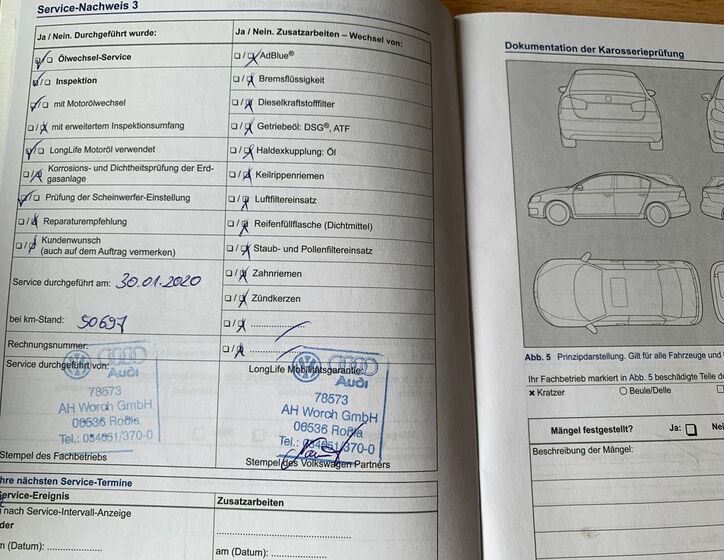 Service-Nachweis 3
Ja / Nein. Durchgeführt wurde:
Ölwechsel-Service
Inspektion
mit Motorölwechsel
mit erweitertem Inspektionsumfang
LongLife Motoröl verwendet
Korrosions- und Dichtheitsprüfung der Erd-
gasanlage
Prüfung der Scheinwerfer-Einstellung
Reparaturempfehlung
Kundenwunsch
(auch auf dem Auftrag vermerken)
Service durchgeführt am: 30.01.2020
bei km-Stand: 50697
Rechnungsnummer:
Service durchgeführt von:
Audi
78573
AH Worch GmbH
06536 Roßla
Tel.: 034651/370-0
Stempel des Fachbetriebs
Ja / Nein. Zusatzarbeiten – Wechsel von:
AdBlue®
Bremsflüssigkeit
Dieselkraftstofffilter
Getriebeöl: DSG®, ATF
Haldexkupplung: Öl
Keilrippenriemen
Luftfiltereinsatz
Reifenfüllflasche (Dichtmittel)
Staub- und Pollenfiltereinsatz
Zahnriemen
Zündkerzen
LongLife Mobilitätsgarantie:
Audi
78573
AH Worch GmbH
06536 Roßla
Tel.: 034651/370-0
Stempel des Volkswagen Partners
hre nächsten Service-Termine
Service-Ereignis
nach Service-Intervall-Anzeige
der
m (Datum):
Zusatzarbeiten
am (Datum):
Dokumentation der Karosserieprüfung
Abb. 5 Prinzipdarstellung. Gilt für alle Fahrzeuge und
Ihr Fachbetrieb markiert in Abb. 5 beschädigte Teile
Kratzer
Beule/Delle
Mängel festgestellt? Ja:
Beschreibung der Mängel: